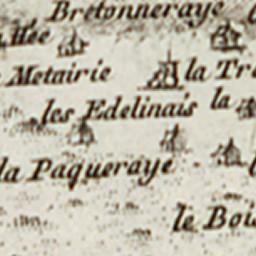 Bretonneraye
Hée
Metairie la Tr
les Edelinais la
la Paqueraye
le Bois